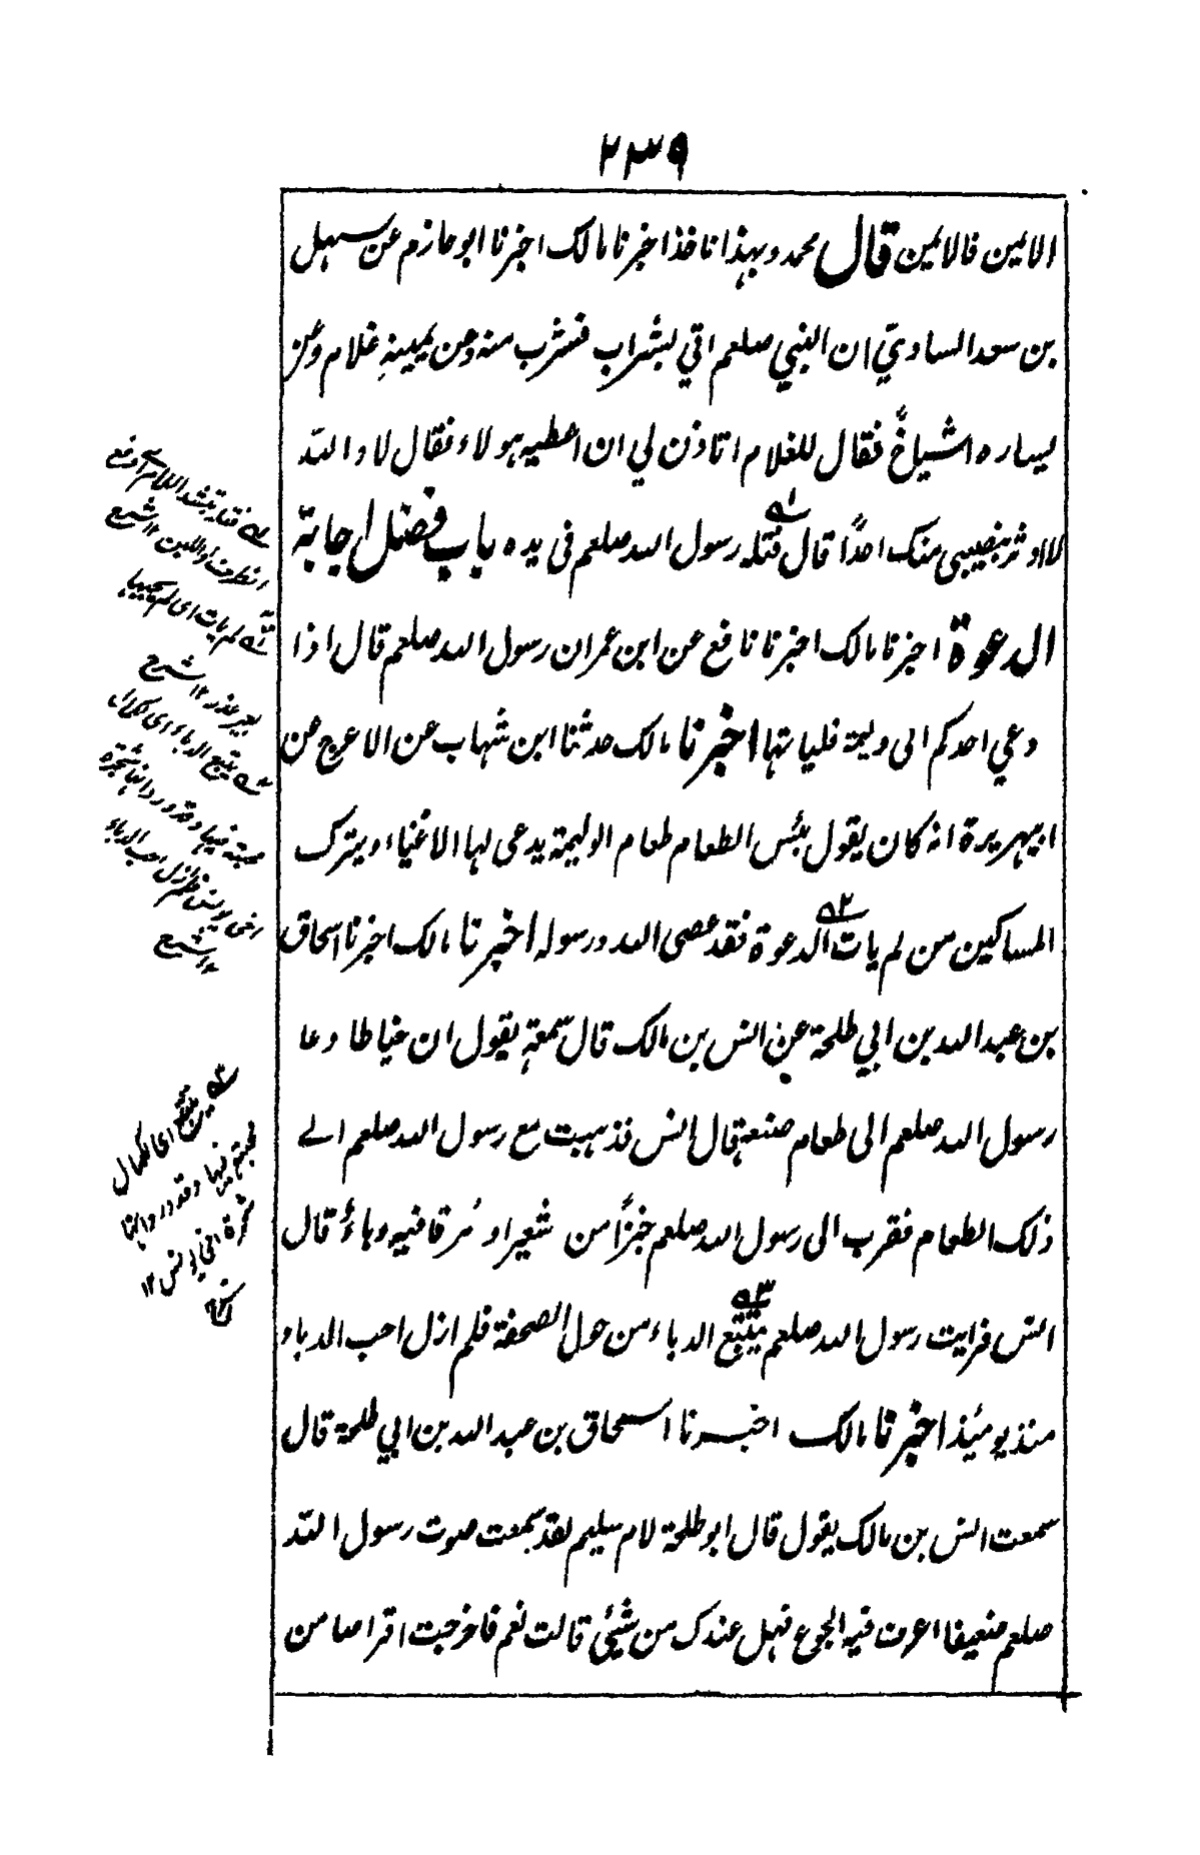 ۲۳۹
الايمن فالايمن قال محمد وبهذا ناخذ اخبرنا مالك اخبرنا ابو حازم عن سهل
بن سعد الساعدي ان النبي صلعم اتي بشراب فشرب منه وعن يمينهِ غلام وعن
يساره اشياخٌ فقال للغلام اتاذن لي ان اعطيه هولاء فقال لا والله
لا اوثر بنصيبى منك احدًا قال فتله رسول الله صلعم فى يده باب فضل اجابة
الدعوة اخبرنا مالك اخبرنا نافع عن ابن عمر ان رسول الله صلعم قال اذا
دعي احدكم الى وليمة فلياتها اخبرنا مالك حدثنا ابن شهاب عن الاعرج عن
ابيهريرة انه كان يقول بئس الطعام طعام الوليمة يدعى لها الاغنياء ويترك
المساكين من لم يات الدعوة فقد عصى الله ورسوله اخبرنا مالك اخبرنا اسحاق
بن عبد الله بن ابي طلحة عن انس بن مالك قال سمعته يقول ان خياطا دعا
رسول الله صلعم الى طعام صنعه قال انس فذهبت مع رسول الله صلعم الے
ذلك الطعام فقرب الى رسول الله صلعم خبزًا من شعير او مُرقا فيه دباءٌ قال
انس فرايت رسول الله صلعم يتتبع الدباء من حول الصحفة فلم ازل احب الدباء
منذ يومئذ اخبرنا مالك اخبرنا اسحاق بن عبد الله بن ابي طلحة قال
سمعت انس بن مالك يقول قال ابو طلحة لام سليم لقد سمعت صوت رسول الله
صلعم ضعيفا اعرف فيه الجوع فهل عندك من شيئى قالت نعم فاخرجت اقراصا من
۱ے فتله بتشد اللام اے دفع
۲ے لم يات اى لم يجبها
بغير عذر ۱۲ شرح
۳ے يتتبع الدباء اى